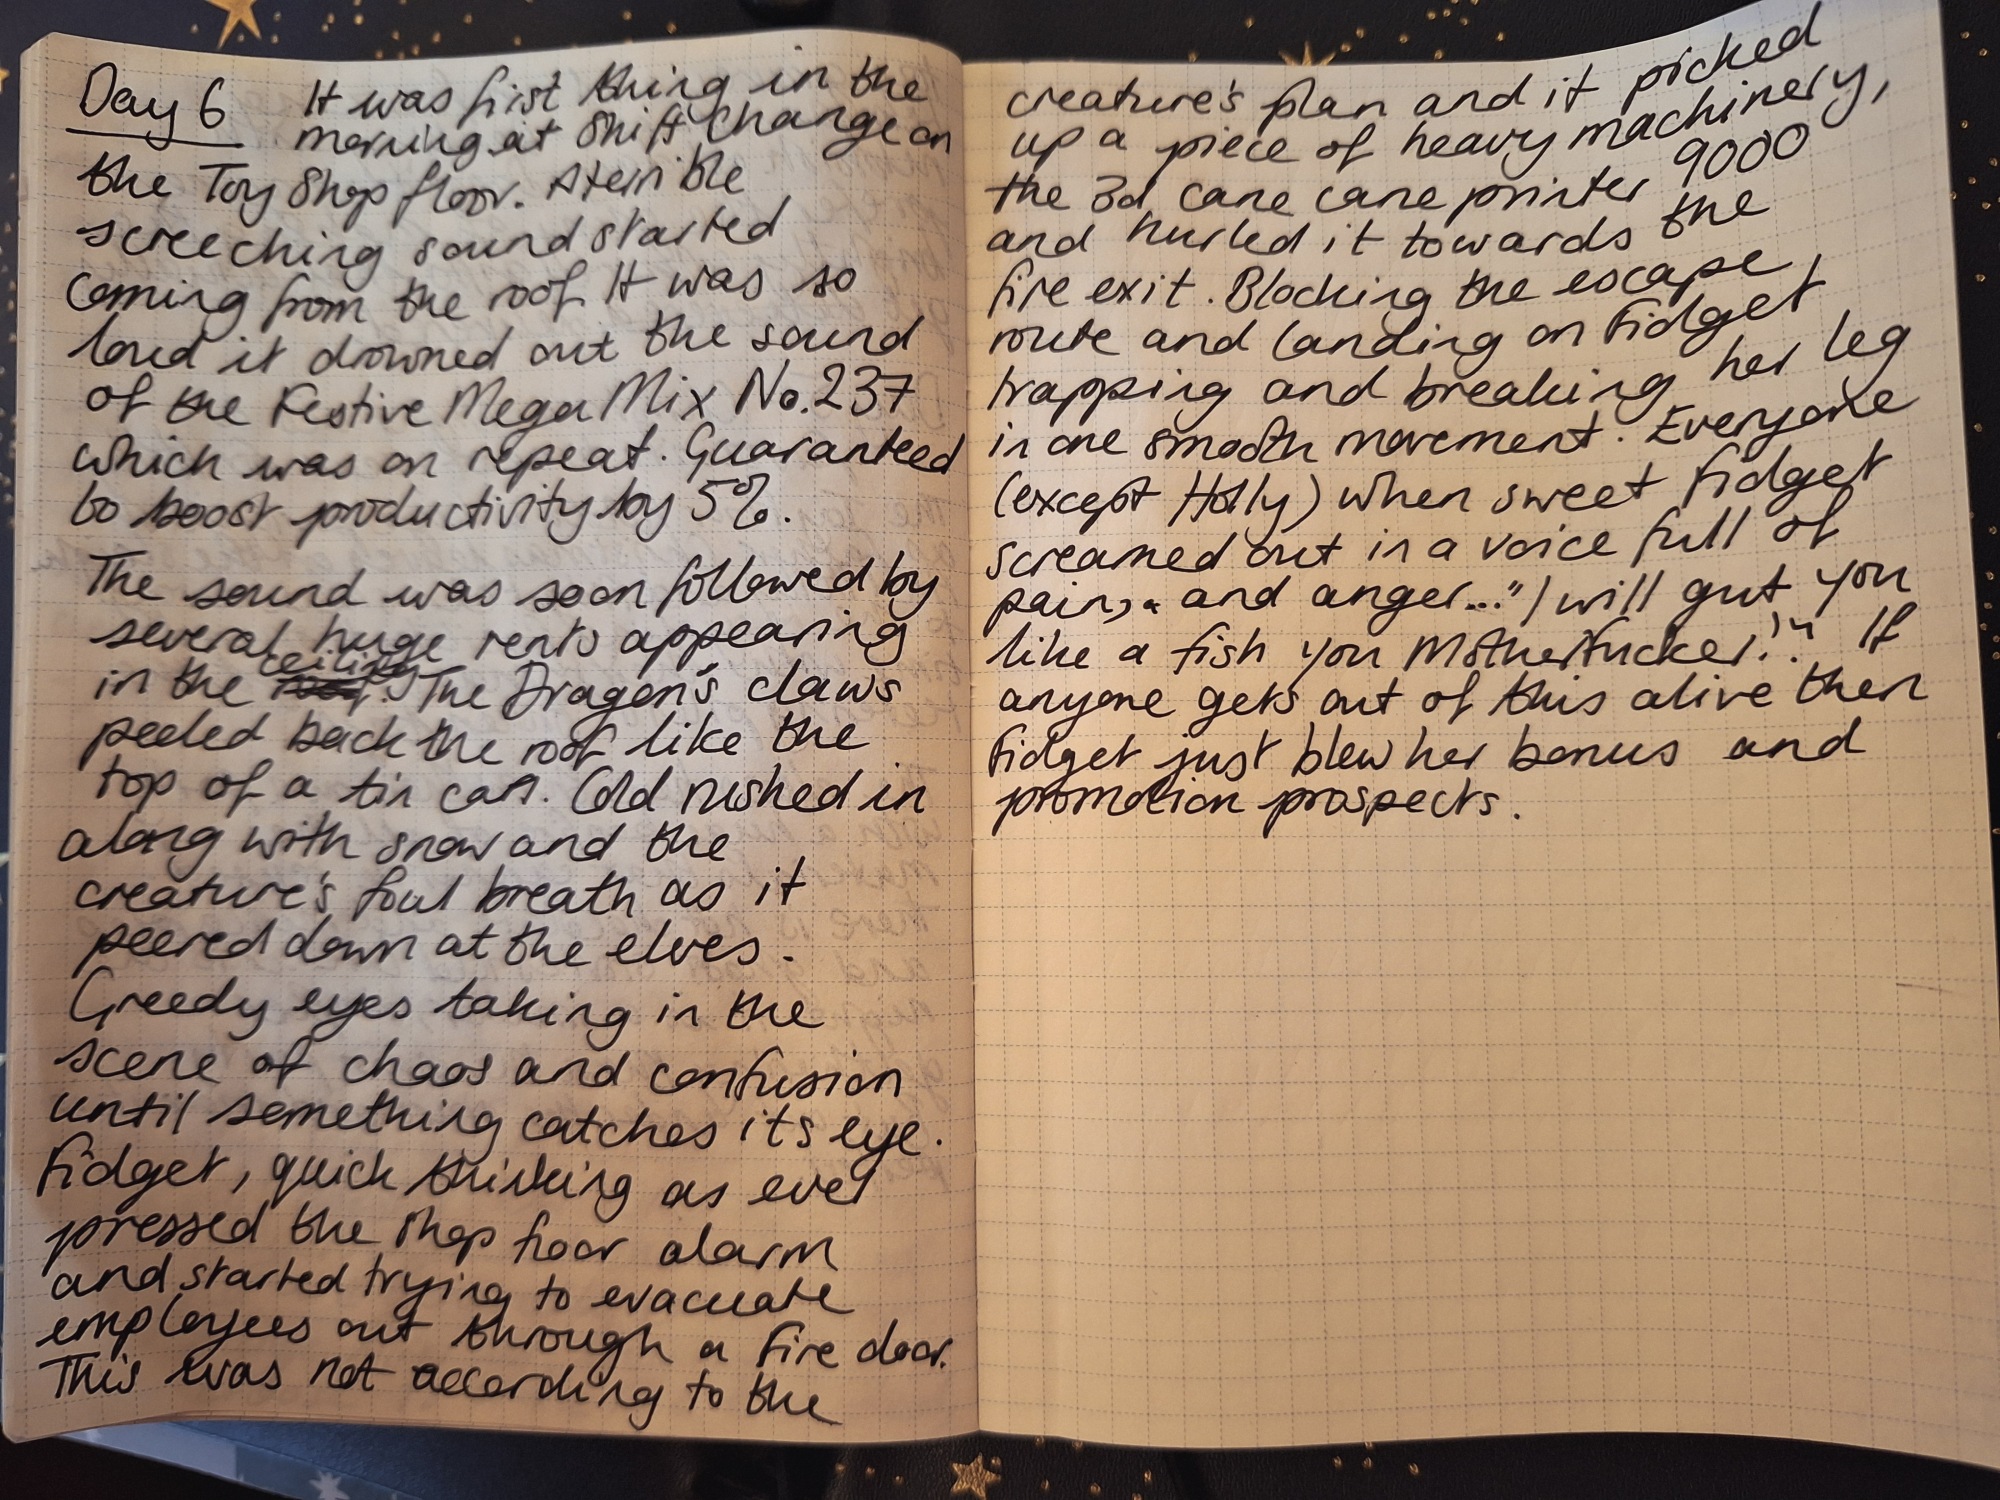 Day 6 It was first thing in the
morning at Shift Change on
the Toy Shop floor. A terrible
screeching sound started
coming from the roof. It was so
loud it drowned out the sound
of the Festive Mega Mix No.237
which was on repeat. Guaranteed
to boost productivity by 5%.
The sound was soon followed by
several huge rents appearing
in the ceiling. The Dragon's claws
peeled back the roof like the
top of a tin can. Cold rushed in
along with snow and the
creature's foul breath as it
peered down at the elves.
Greedy eyes taking in the
scene of chaos and confusion
until something catches its eye.
Fidget, quick thinking as ever
pressed the shop floor alarm
and started trying to evacuate
employees out through a fire door.
This was not according to the
creature's plan and it picked
up a piece of heavy machinery,
the 3d cane cane printer 9000
and hurled it towards the
fire exit. Blocking the escape
route and landing on Fidget
trapping and breaking her leg
in one smooth movement. Everyone
(except Holly) when sweet Fidget
screamed out in a voice full of
pain, and anger..."I will gut you
like a fish you Motherfucker!" If
anyone gets out of this alive then
Fidget just blew her bonus and
promotion prospects.